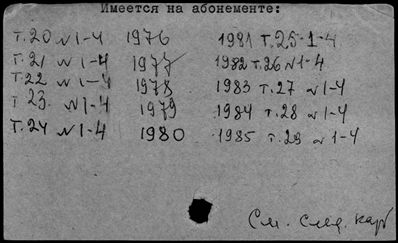 Имеется на абонементе:
т.20 №1-4 1976 1981 т.25-1-4
т.21 №1-4 1977 1982 т.26 №1-4
т.22 №1-4 1978 1983 т.27 №1-4
т.23. №1-4 1979 1984 т.28 №1-4
т.24 №1-4 1980 1985 т.29 №1-4
См. след. карт